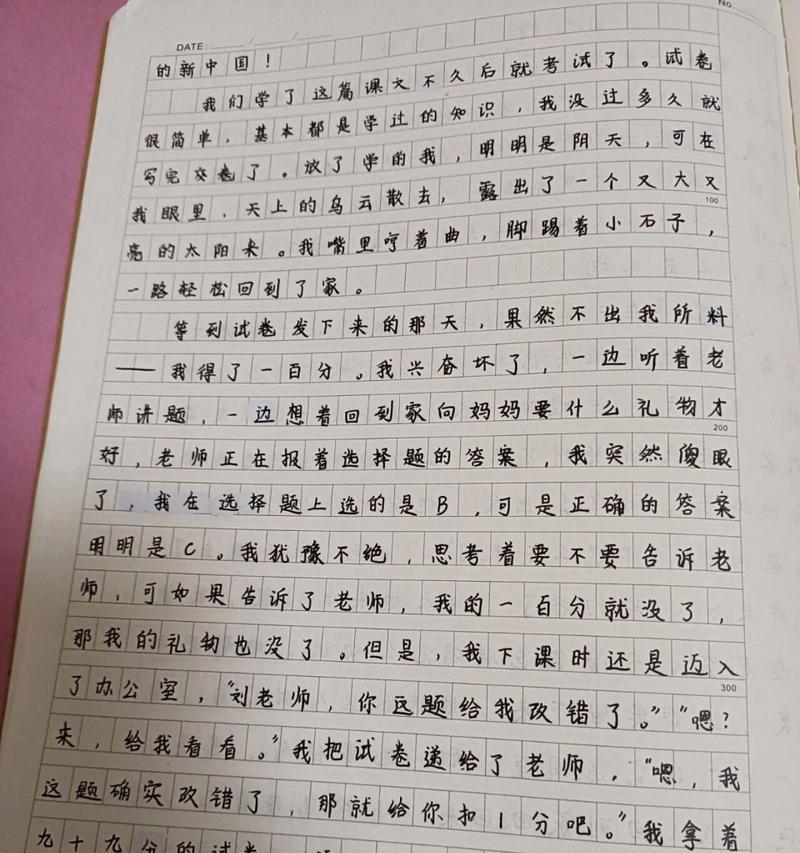 No.
DATE: / /
的新中国！
我们学了这篇课文不久后就考试了。试卷
很简单，基本都是学过的知识，我没过多久就
写完交卷了。放了学的我，明明是阴天，可在
我眼里，天上的乌云散去，露出了一个又大又
100
亮的太阳来。我嘴里哼着曲，脚踢着小石子，
一路轻松回到了家。
等到试卷发下来的那天，果然不出我所料
——我得了一百分。我兴奋坏了，一边听着老
师讲题，一边想着回到家向妈妈要什么礼物才
200
好，老师正在报着选择题的答案，我突然傻眼
了，我在选择题上选的是B，可是正确的答案
明明是C。我犹豫不绝，思考着要不要告诉老
师，可如果告诉了老师，我的一百分就没了，
那我的礼物也没了。但是，我下课时还是迈入
300
了办公室，“刘老师，你这题给我改错了。”“嗯？
来，给我看看。”我把试卷递给了老师，“嗯，我
这题确实改错了，那就给你扣1分吧。”我拿着
九十九分的试卷